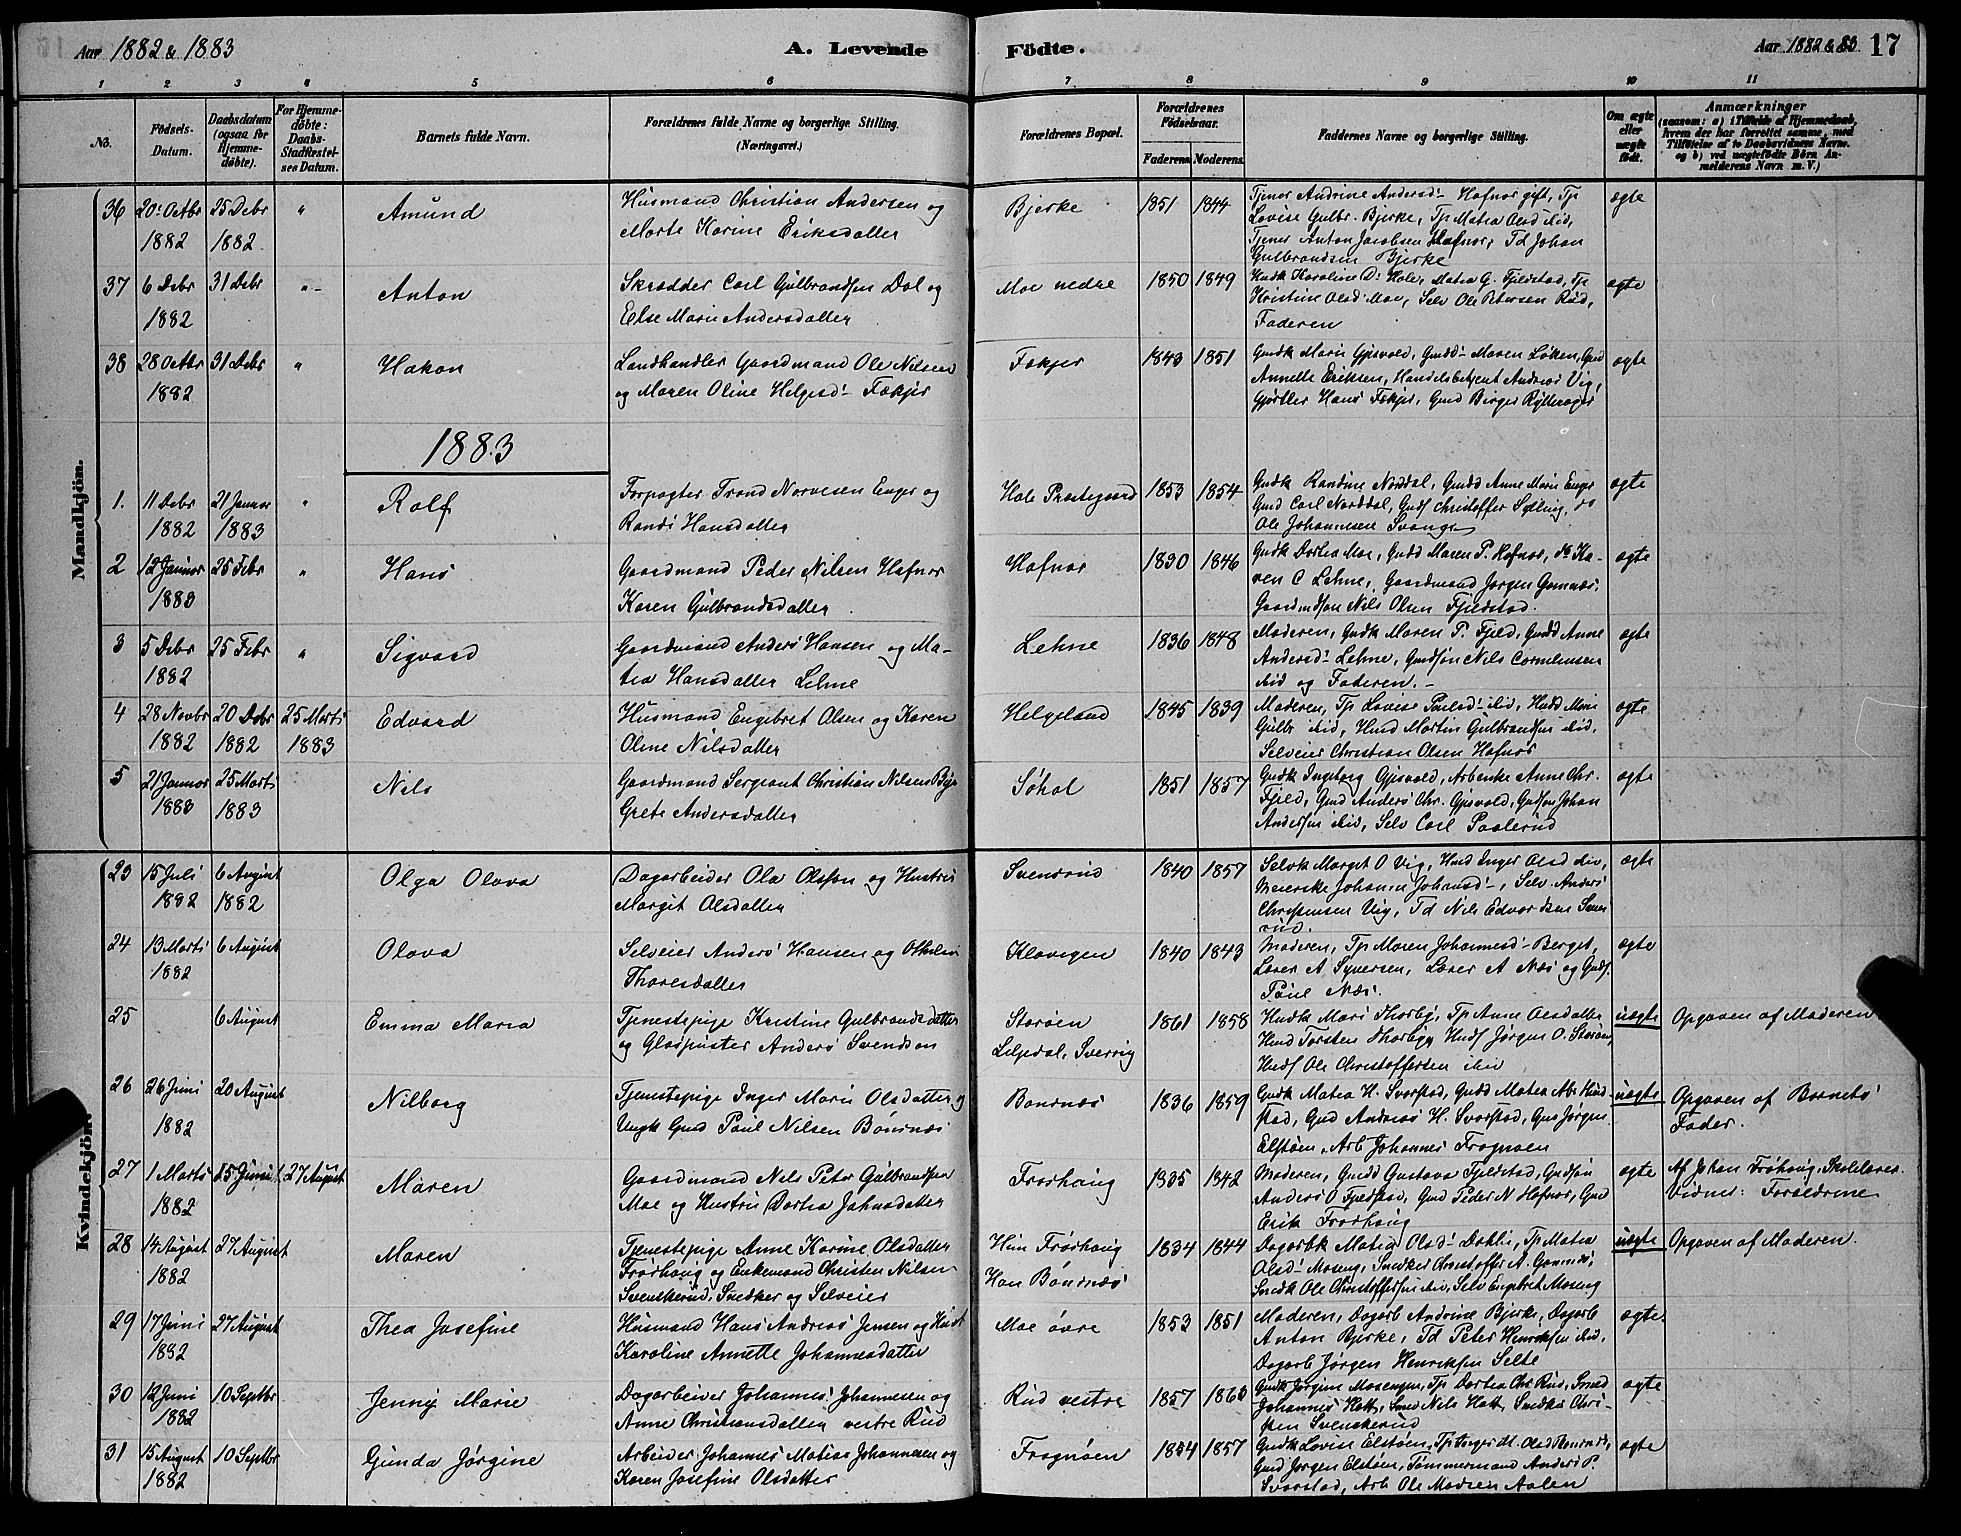 Aar 1882 & 1883
A. Levende
Födte.
Aar 1882 & 83
17
1 2 3 4 5 6 7 8 9 10 11
No.
Födsels-Datum.
Daabsdatum (ogsaa for Hjemme-döbte).
For Hjemme-döbte: Daabs-Stadfæstel-ses Datum.
Barnets fulde Navn.
Forældrenes fulde Navne og borgerlige Stilling.
(Næringsvei.)
Forældrenes Bopæl.
Forældrenes Födselsaar.
Faderens. Moderens.
Faddernes Navne og borgerlige Stilling.
Om ægte eller uægte födt.
Anmærkninger
(saasom: a) i Tilfælde af Hjemmedaab, hvem der har forrettet samme, med Tilföielse af to Daabsvidners Navne. og b) ved uægtefödte Börn An-melderens Navn m. V.)
Mandkjön.
36 20' Octbr 1882 25 Debr 1882 " Amund
Husmand Christian Andersen og
Marte Karine Eriksdatter
Bjerke 1851 1844
Tjener Andrine Andersd- Hafnor gift, Tp
Lovise Gulbr. Bjerke, Tp Matea Olsd ibid,
Tjener Anton Jacobsen Hafnor, Td Johan
Gulbrandsen Bjerke
ægte
37 6 Debr 1882 31 Debr " Anton
Skrædder Carl Gulbrandsen Dal og
Else Marie Andersdatter
Moe nedre 1850 1849
Hudk Karoline D: Hole, Matea G. Fjeldstad, Tp
Kristine Olsd Moe, Selv Ole Petersen Rud,
Faderen
ægte
38 28 Octbr 1882 31 Debr " Hakon
Landhandler Gaardmand Ole Nilsen
og Maren Oline Helgesd- Fekjer
Fekjer 1843 1851
Gmdk Marie Gjesvold, Gmdd- Maren Løken, Gmd
Annette Eriksen, Handelsbetjent Andreas Vig,
Gjørtler Hans Fekjer, Gmd Birger Rytterager
ægte
1883
1. 11 Debr 1882 21 Januar 1883 " Rolf
Forpagter Trond Narvesen Enger og
Randi Hansdatter
Hole Præstegaard 1853 1854
Gmdk Randine Norddal, Gmdd Anne Marie Enger
Gmd Carl Norddal, Gmds Christoffer Sylling, do
Ole Johannesen Svang
ægte
2 12 Januar 1883 25 Febr " Hans
Gaardmand Peder Nilsen Hafnor
Karen Gulbrandsdatter
Hafnor 1830 1846
Gmdk Dortea Moe, Gmdd Maren P. Hafnor, do Ka-
ren C Lehne, Gaardmand Jørgen Gomnæs.
Gaardmdsøn Nils Olsen Fjeldstad.
ægte
3 5 Debr 1882 25 Febr " Sigvard
Gaardmand Anders Hansen og Ma-
tea Hansdatter Lehne
Lehne 1836 1848
Moderen, Gmdk Maren P. Fjeld, Gmdd Anne
Andersd- Lehne, Gmdsøn Nils Corneliusen
ibid og Faderen.-
ægte
4 28 Novbr 1882 20 Debr 1882 25 Marts 1883 Edvard
Husmand Engebret Olsen og Karen
Oline Nilsdatter
Helgeland 1845 1839
Moderen, Tp Lovise Paulsd- ibid, Husd Marie
Gulbr ibid, Hmd Martin Gulbrandsen ibid,
Selveier Christian Olsen Hafnor
ægte
5 21 Januar 1883 25 Marts 1883 Nils
Gaardmand Sergeant Christian Nilsen Bye
Grete Andersdatter
Søhol 1851 1857
Gmdk Ingeborg Gjesvold, Arbenke Anne Chr.
Fjeld, Gmd Anders Chr. Gjesvold, Gmdsøn Johan
Andersen ibid, Selv Carl Paalerud
ægte
Kvindekjön.
23 15 Juli 1882 6 August 1882 Olga Olava
Dagarbeider Ole Olsson og Hustru
Margit Olsdatter
Svensrud 1840 1857
Selvk Marget O Vig, Hmd Inger Olsd ibid,
Meierske Johanne Johansd-, Selv Anders
Christensen Vig, Td Nils Edvardsen Svens
rud.
ægte
24 13 Marts 1882 6 August Olava
Selveier Anders Hansen og Othelie
Thoresdatter
Klovigen 1840 1843
Moderen, Tp Maren Johannesd- Berget,
Lærer A Syversen, Lærer A Næs og Gmds.
Paul Næs.
ægte
25 6 August Emma Maria
Tjenestepige Kristine Gulbrandsdatter
og Glaspuster Anders Svendsen
Storøen
Liljedal, Sverrig
1861 1858
Hudk Mari Thorbj, Tp Anne Olsdatter
Hmd Torsten Thorbj, Husf Jørgen O. Storøen,
Husf Ole Christoffersen ibid
uægte Opgaven af Moderen
26 26 Juni 1882 20 August Nilborg
Tjenestepige Inger Marie Olsdatter og
Ungk Gmd Paul Nilsen Bønsnæs
Bønsnæs 1836 1859
Gmdk Matea H. Svarstad, Gmdd Matea Abr Hund
stad, Gmd Andreas H. Svarstad, Gmd Jørgen
Elstøen, Arb Johannes Frognøen
uægte Opgaven af Barnets
Fader.
27 1 Marts 1882 15 Juni 27 August Maren
Gaardmand Nils Peter Gulbrandsen
Moe og Hustru Dortea Johnsdatter
Frorhaug 1835 1842
Moderen, Gmdd Gustava Fjeldstad, Gmdsøn
Anders O Fjeldstad, Gmd Peder N Hafnor, Gmd
Erik Frorhaug
ægte Af Johan Frøhaug, Skolelærer
Vidner: Forældrene
28 14 August 1882 27 August Maren
Tjenestepige Anne Karine Olsdatter
Frørhaug og Enkemand Christen Nilsen
Svenskerud, Snedker og Selveier
Hun Frørhaug
Han Bønsnæs
1834 1844
Dagarbk Matea Olsd- Dahli, Tp Matea
Olsd- Moseng, Snedker Christoffer A. Gomnæs,
Snedk Ole Christoffersen ibid, Selv Engebret Moseng
uægte Opgaven af Moderen.
29 17 Juni 1882 27 August Thea Josefine
Husmand Hans Andreas Jensen og Hust
Karoline Annette Johannesdatter
Moe øvre 1853 1851
Moderen, Dagarb Andrine Bjerke, Dagarb
Anton Bjerke, Td Peter Henriksen ibid,
Dagarb Jørgen Henriksen Selte
ægte.
30 12 Juni 1882 10 Septbr Jenny Marie
Dagarbeider Johannes Johannesen og
Anne Christiansdatter vestre Rud
Rud vestre 1857 1863
Gmdk Jørgine Mosengen, Tp Dortea Chr Rud, Smed
Johannes Hatt, Smed Nils Hatt, Snedker Chri-
sten Svenskerud
ægte
31 15 August 1882 10 Septbr Gunda Jørgine
Arbeider Johannes Matias Johannesen og
Karen Josefine Olsdatter
Frognøen 1854 1857
Gmdk Lovise Elstøen, Tp Inger M. Olsd Bønsnæs,
Gmd Jørgen Elstøen, Tømmermand Anders P.
Svarstad, Arb Ole Madsen Aalen
ægte